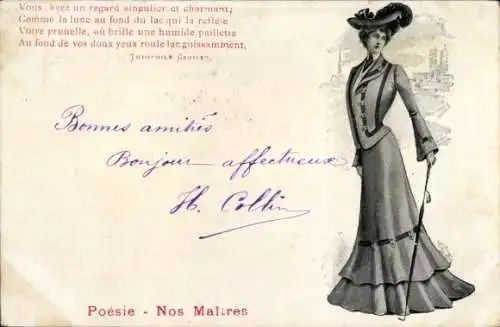 Vous avez un regard singulier et charmant;
Comme la lune au fond du lac qui la reflète
Votre prunelle, où brille une humide paillette
Au fond de vos doux yeux roule languissamment.
Théophile Gautier.
Bonnes amitiés
Bonjour affectueux
H. Collin
Poésie - Nos Maîtres